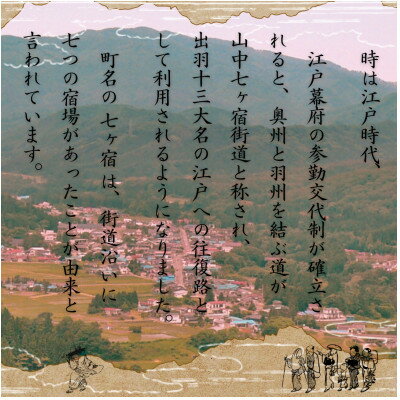 時は江戸時代、
江戸幕府の参勤交代制が確立さ
れると、奥州と羽州を結ぶ道が
山中七ヶ宿街道と称され、
出羽十三大名の江戸への往復路と
して利用されるようになりました。
町名の七ヶ宿は、街道沿いに
七つの宿場があったことが由来と
言われています。